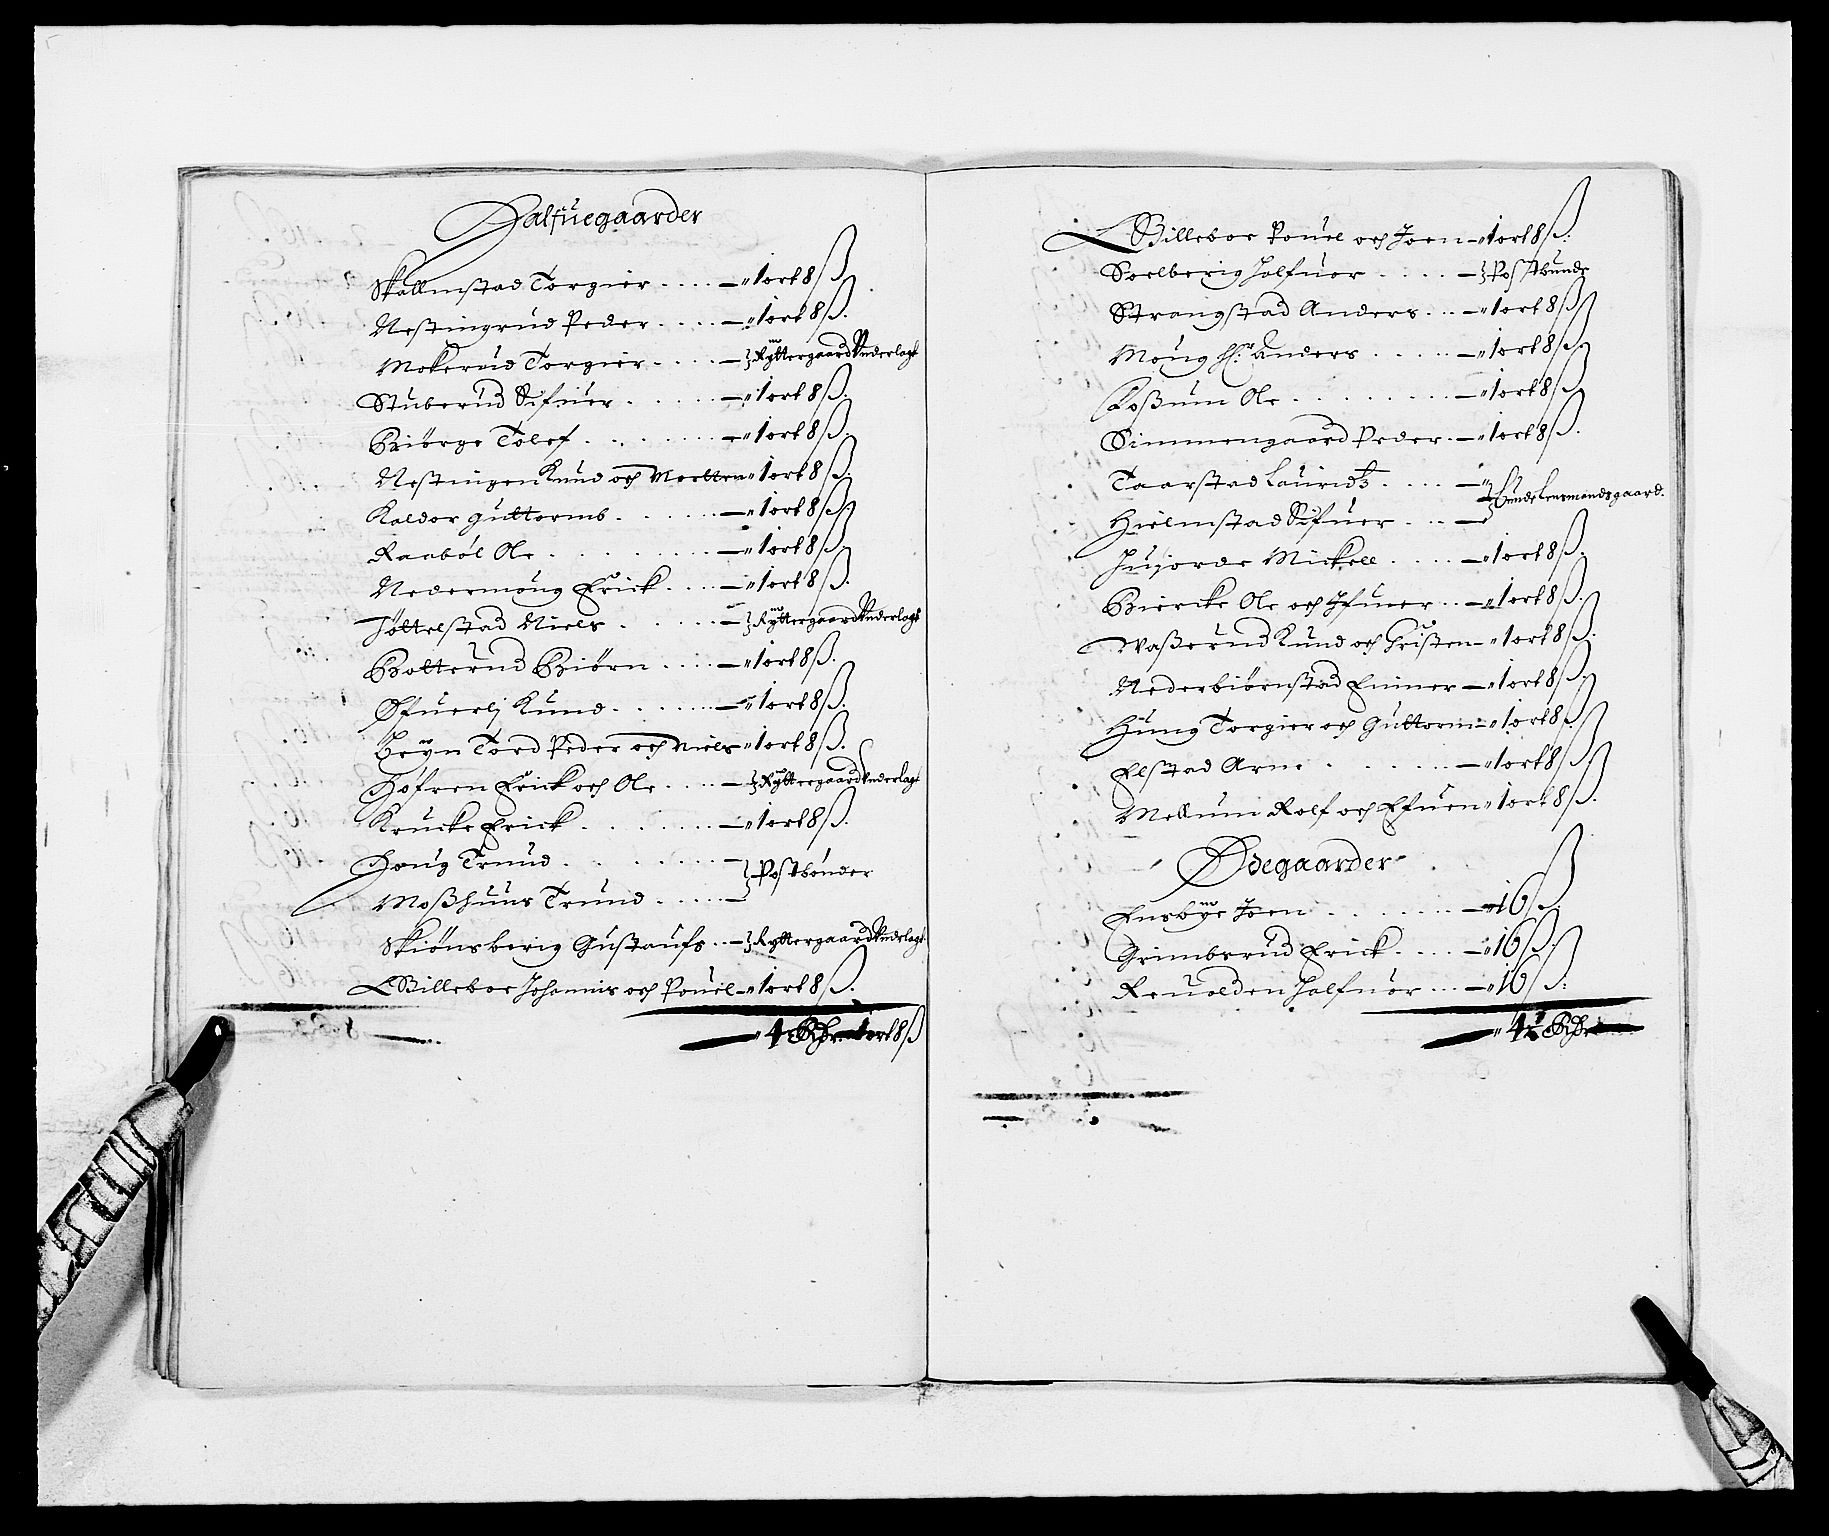 Halfuegaarder
Skallmstad Torgier . . . . — " 1 ort 8 ß.
Nestingrud Peder . . . . — " 1 ort 8 ß.
Mokerud Torgier . . . . — } Ryttergaard Underlagt
Stuberud Sifuer . . . . . — " 1 ort 8 ß.
Biörge Tolef . . . . . . — " 1 ort 8 ß.
Nestingen Knud och Morten " 1 ort 8 ß.
Kaldor Guttormb . . . . . — " 1 ort 8 ß.
Raaböl Ole . . . . . . . — " 1 ort 8 ß.
Nedermoug Erick . . . . — " 1 ort 8 ß.
Jöttelstad Niels . . . . . — } Ryttergaard Underlagt
Botterud Biörn . . . . — " 1 ort 8 ß.
Ofuerlj Knud . . . . . . — " 1 ort 8 ß.
Bryn Tord Peder och Niels " 1 ort 8 ß.
Höfren Erick och Ole . . . . — } Ryttergaard Underlagt
Krucke Erick . . . . . . . — " 1 ort 8 ß.
Houg Trund . . . . . . . —
} Postbönder
Moßhuus Trund . . . . . —
Skiönsberig Gustaufs . . — } Ryttergaard Underlagt
Billeboe Johannis och Pouel — " 1 ort 8 ß.
— " 4 Rdr. 1 ort 8 ß
Billeboe Pouel och Joen — " 1 ort 8 ß.
Soelberig Halfuor . . . . — } Postbunde
Strangstad Anders . . . — " 1 ort 8 ß
Moug Hr. Anders . . . . . — " 1 ort 8 ß
Foßum Ole . . . . . . . . — " 1 ort 8 ß
Simmengaard Peder . — " 1 ort 8 ß.
Taarstad Lauridtz . . . . — "
} Bundelensmandsgaard.
Hielmstad Sifuer . . . —
Jujorde Mickell . . . . — " 1 ort 8 ß.
Biercke Ole och Ifuuer . . — " 1 ort 8 ß.
Waßerud Knud och Christen — " 1 ort 8 ß.
Nederbiörnstad Einer — " 1 ort 8 ß.
Huug Torgier och Guttorm — " 1 ort 8 ß
Elstad Arne . . . . . . — " 1 ort 8 ß
Mellum Rolf och Efuen " 1 ort 8 ß.
Ödegaarder
Ensbye Joen . . . . . . . — " 16 ß.
Grimbsrud Erick . . . . — " 16 ß.
Reuolden Halfuor . . . — " 16 ß.
— " 4½ Rdr —